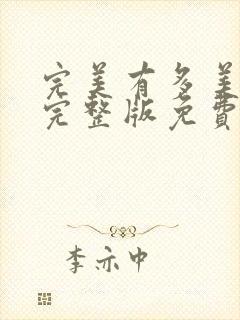 完美有多美
完整版免費
李亦中